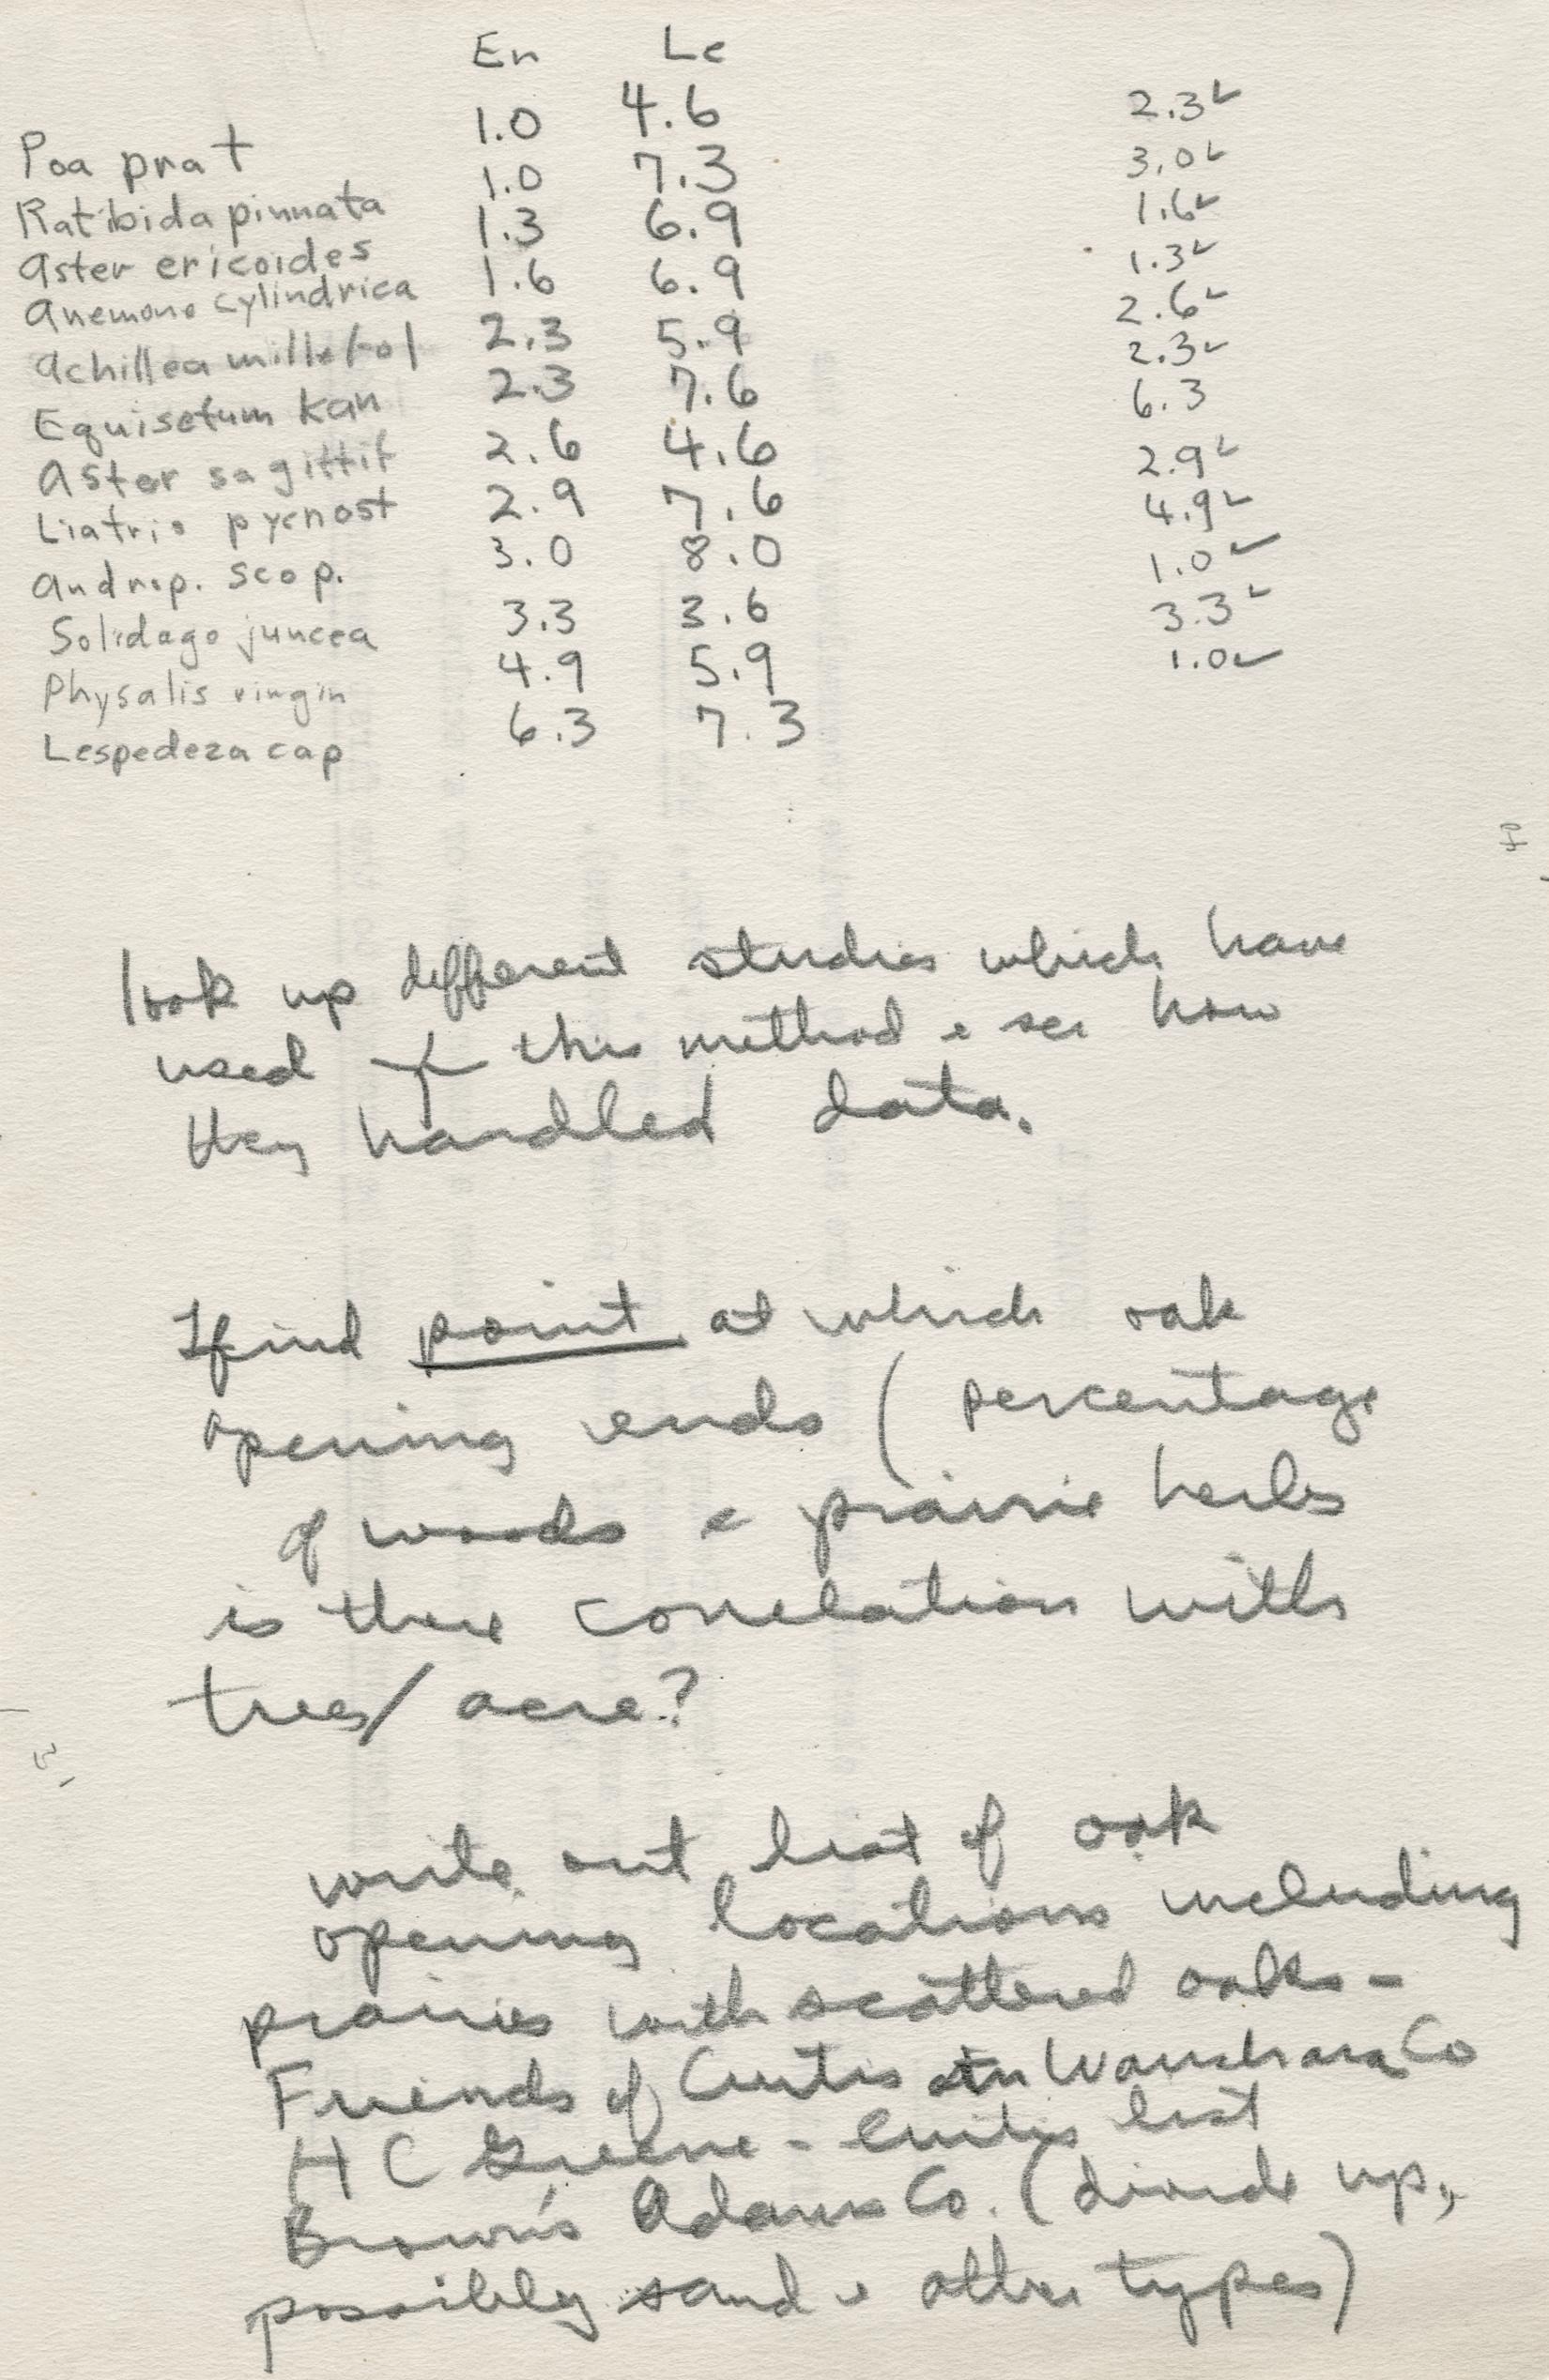 En Le
1.0 4.6 2.3✓
Poa prat 1.0 7.3 3.0✓
Ratibida pinnata 1.3 6.9 1.6✓
Aster ericoides 1.6 6.9 1.3✓
Anemone cylindrica 2.3 5.9 2.6✓
Achillea millefol 2.3 7.6 2.3✓
Equisetum kan 2.6 4.6 6.3
Aster sagittif 2.9 7.6 2.9✓
Liatris pycnost 3.0 8.0 4.9✓
Androp. scop. 3.3 3.6 1.0✓
Solidago juncea 4.9 5.9 3.3✓
Physalis virgin 6.3 7.3 1.0✓
Lespedeza cap
look up different studies which have
used this method & see how
they handled data.
find point at which oak
opening ends (percentage
of woods & prairie herbs
is there correlation with
trees/acre?
write out list of oak
opening locations including
prairies with scattered oaks -
Friends of Curtis in Waushara Co
H C Greene - Curtis list
Brown's Adams Co. (divide up,
possibly sand & other types)